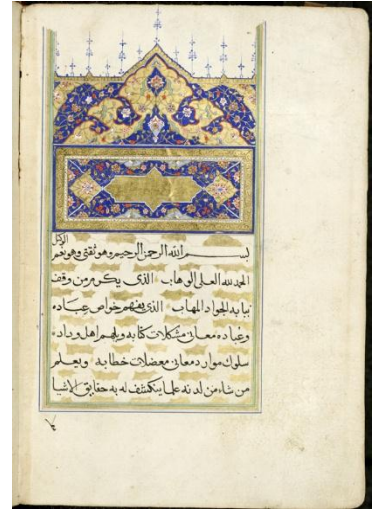 بسم الله الرحمن الرحيم وهو ثقتي وهو نعم
الوكيل
الحمد لله العلي الوهاب الذي يكرم من وقف
ببابه الجواد المهاب الذي يفهم خواص عباده
وعباده معاني مشكلات كتابه ويلهم اهل وداده
سلوك موارد معاني معضلات خطابه ويعلم
من شاء من لدنه علما ينكشف له به حقايق الاشيا